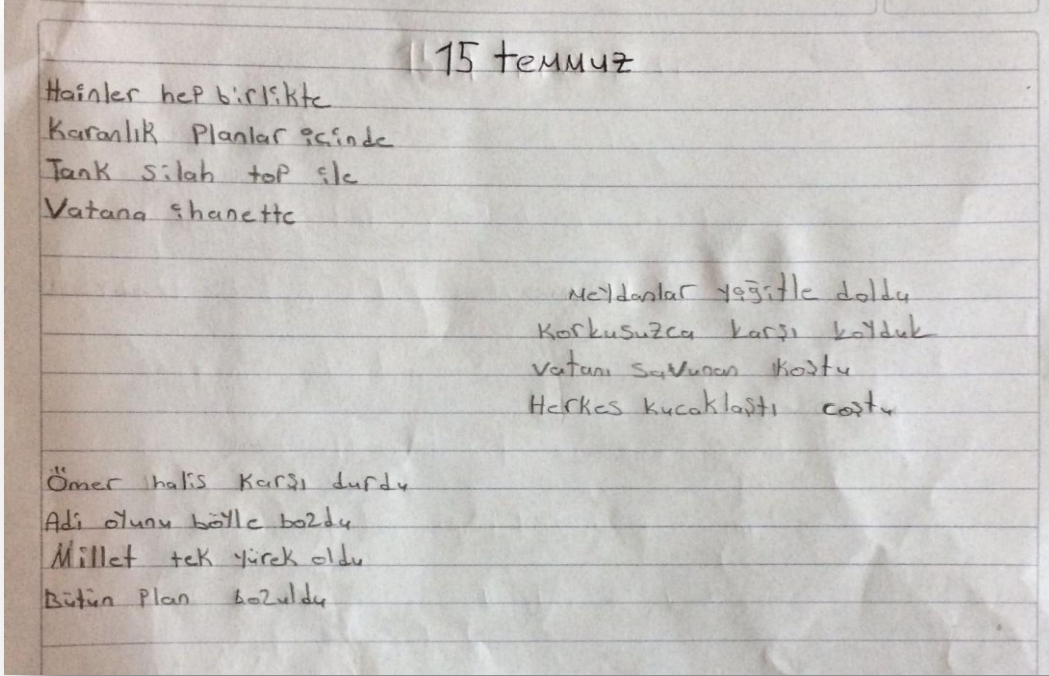 15 temmuz
Hainler hep birlikte
Karanlık Planlar içinde
Tank silah top ile
Vatana ihanette
Meydanlar yiğitle doldu
Korkusuzca karşı koyduk
Vatanı savunan koştu
Herkes kucaklaştı coştu
Ömer halis karşı durdu
Adi oyunu böyle bozdu
Millet tek yürek oldu
Bütün Plan bozuldu